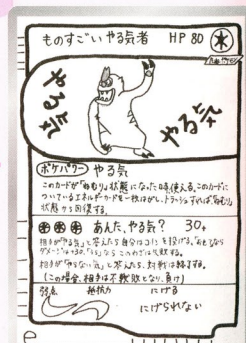 ものすごい やる気者 HP 80 木
やる気
やる気
ポケパワー やる気
このカードが「ねむり」状態になった時、使える。このカードに
ついているエネルギーカードを一枚はがし、トラッシュすれば、「ねむり」
状態から回復する。
あんた、やる気? 30+
相手が「やる気」と答えたら自分はコインを投げる。「おもて」なら
ダメージ+30、「うら」ならこのワザは失敗する。
相手が「やらない気」と答えたら、対戦は終了する。
(この場合、相手は不戦敗となり、負け)
弱点 抵抗力 にげる
にげられない